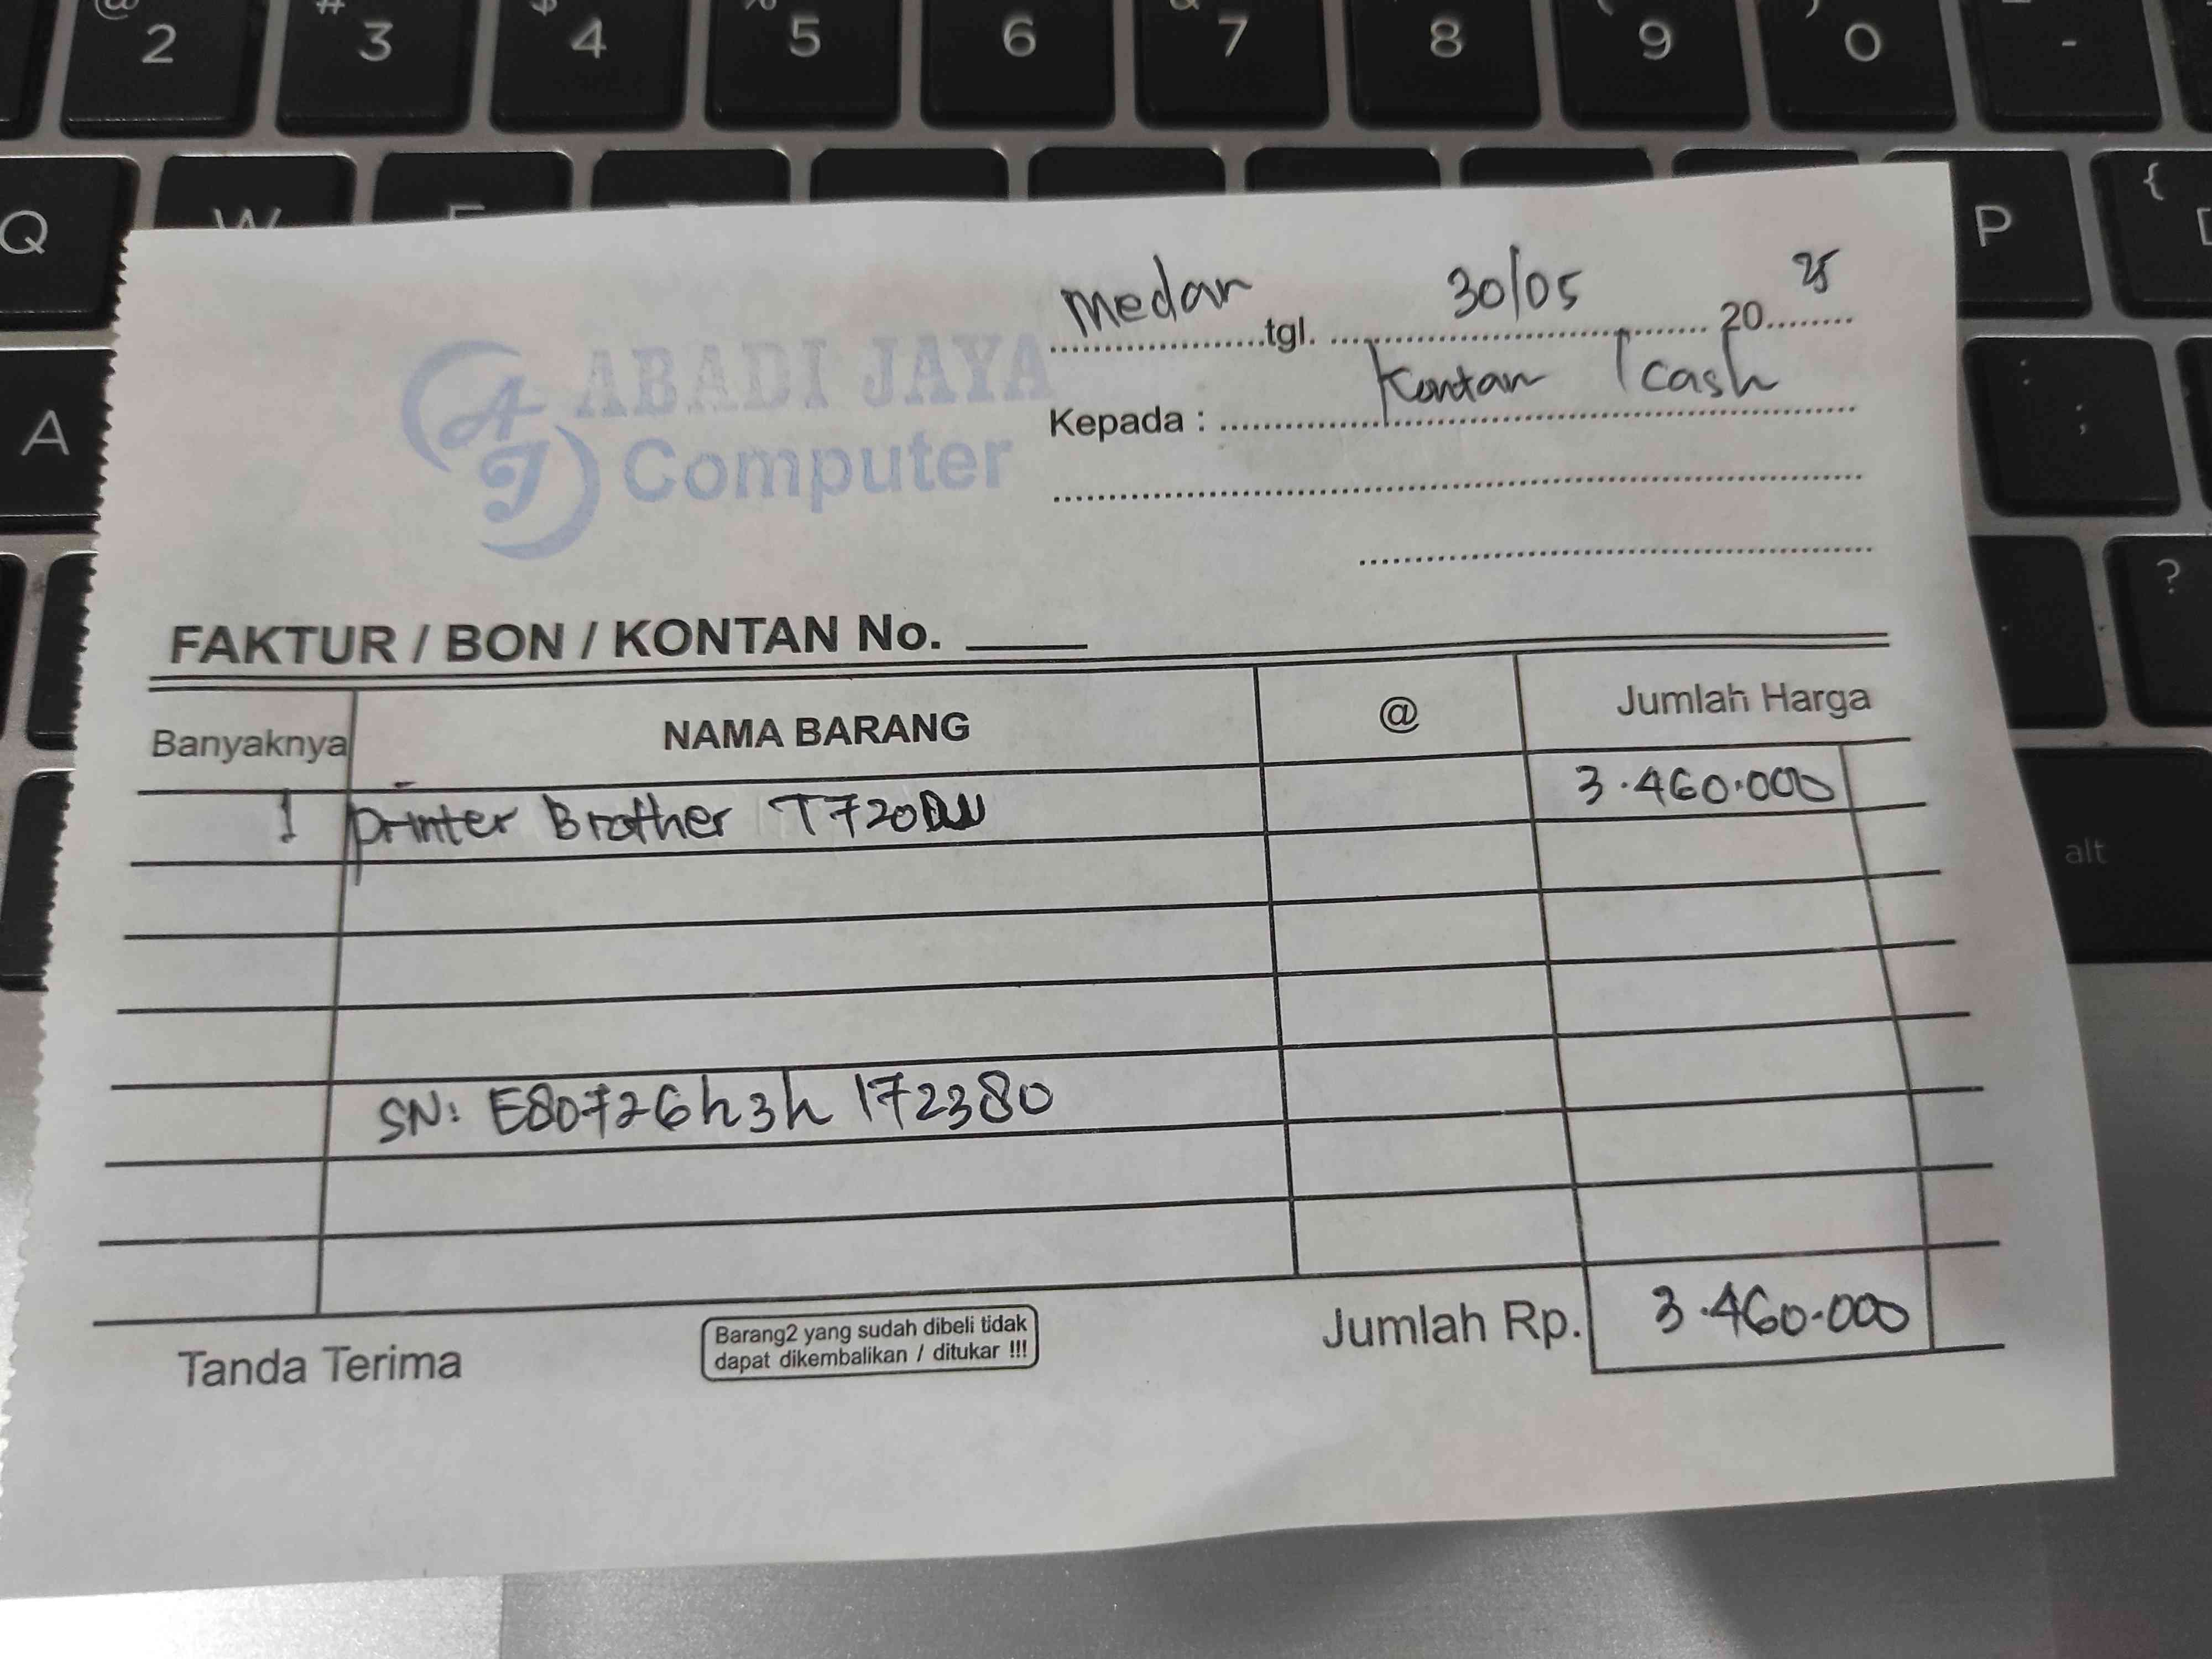 @ # $ % & ( )
2 3 4 5 6 7 8 9 0 -
Q W P {
A : ;
?
alt
ABADI JAYA
Computer
AJ
Medan tgl. 30/05 2025
Kepada : Kontan / Cash
FAKTUR / BON / KONTAN No.
Banyaknya NAMA BARANG @ Jumlah Harga
1 Printer Brother T720DW 3.460.000
SN: E80726h3h 172380
Tanda Terima
Barang2 yang sudah dibeli tidak
dapat dikembalikan / ditukar !!!
Jumlah Rp. 3.460.000